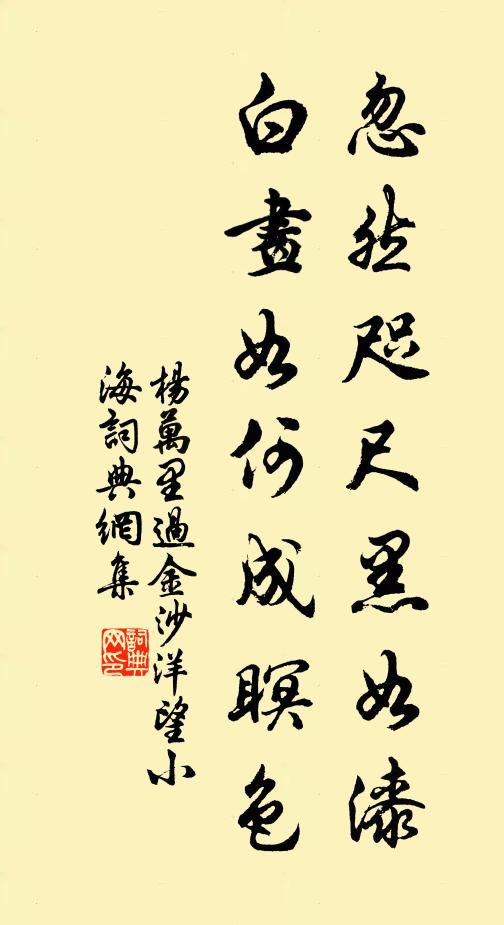 忽然咫尺黑如漆
白晝如何成暝色
楊萬里過金沙洋望小
海詞典網集
詞典
网印